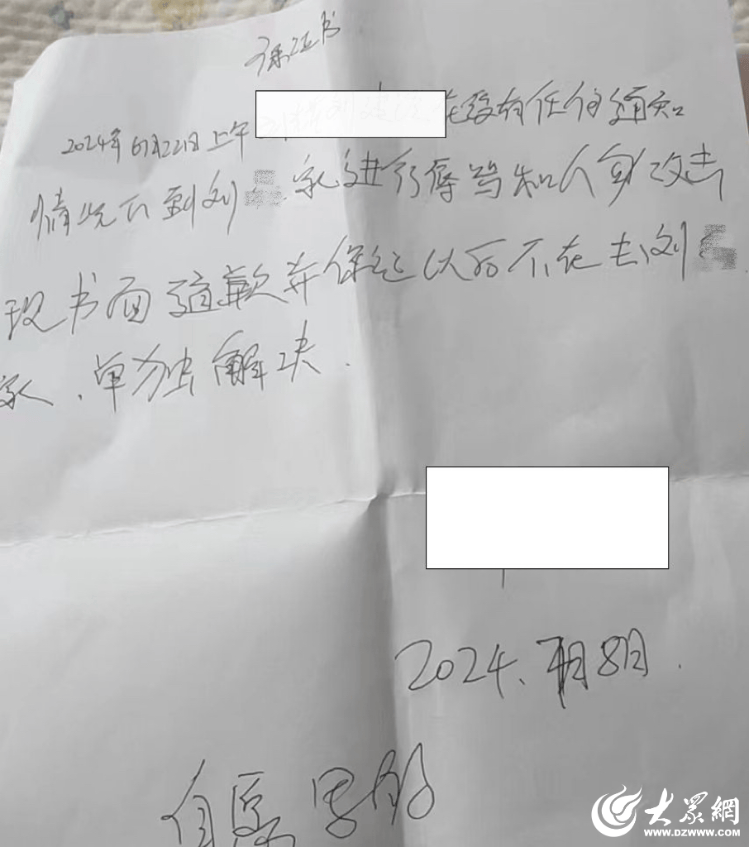 保证书
2024年6月22日上午 在没有任何通知
情况下到刘 家进行辱骂和人身攻击
现书面道歉并保证以后不在去刘
家、单独解决.
2024、7月8日.
自愿
大众網
WWW.DZWWW.COM